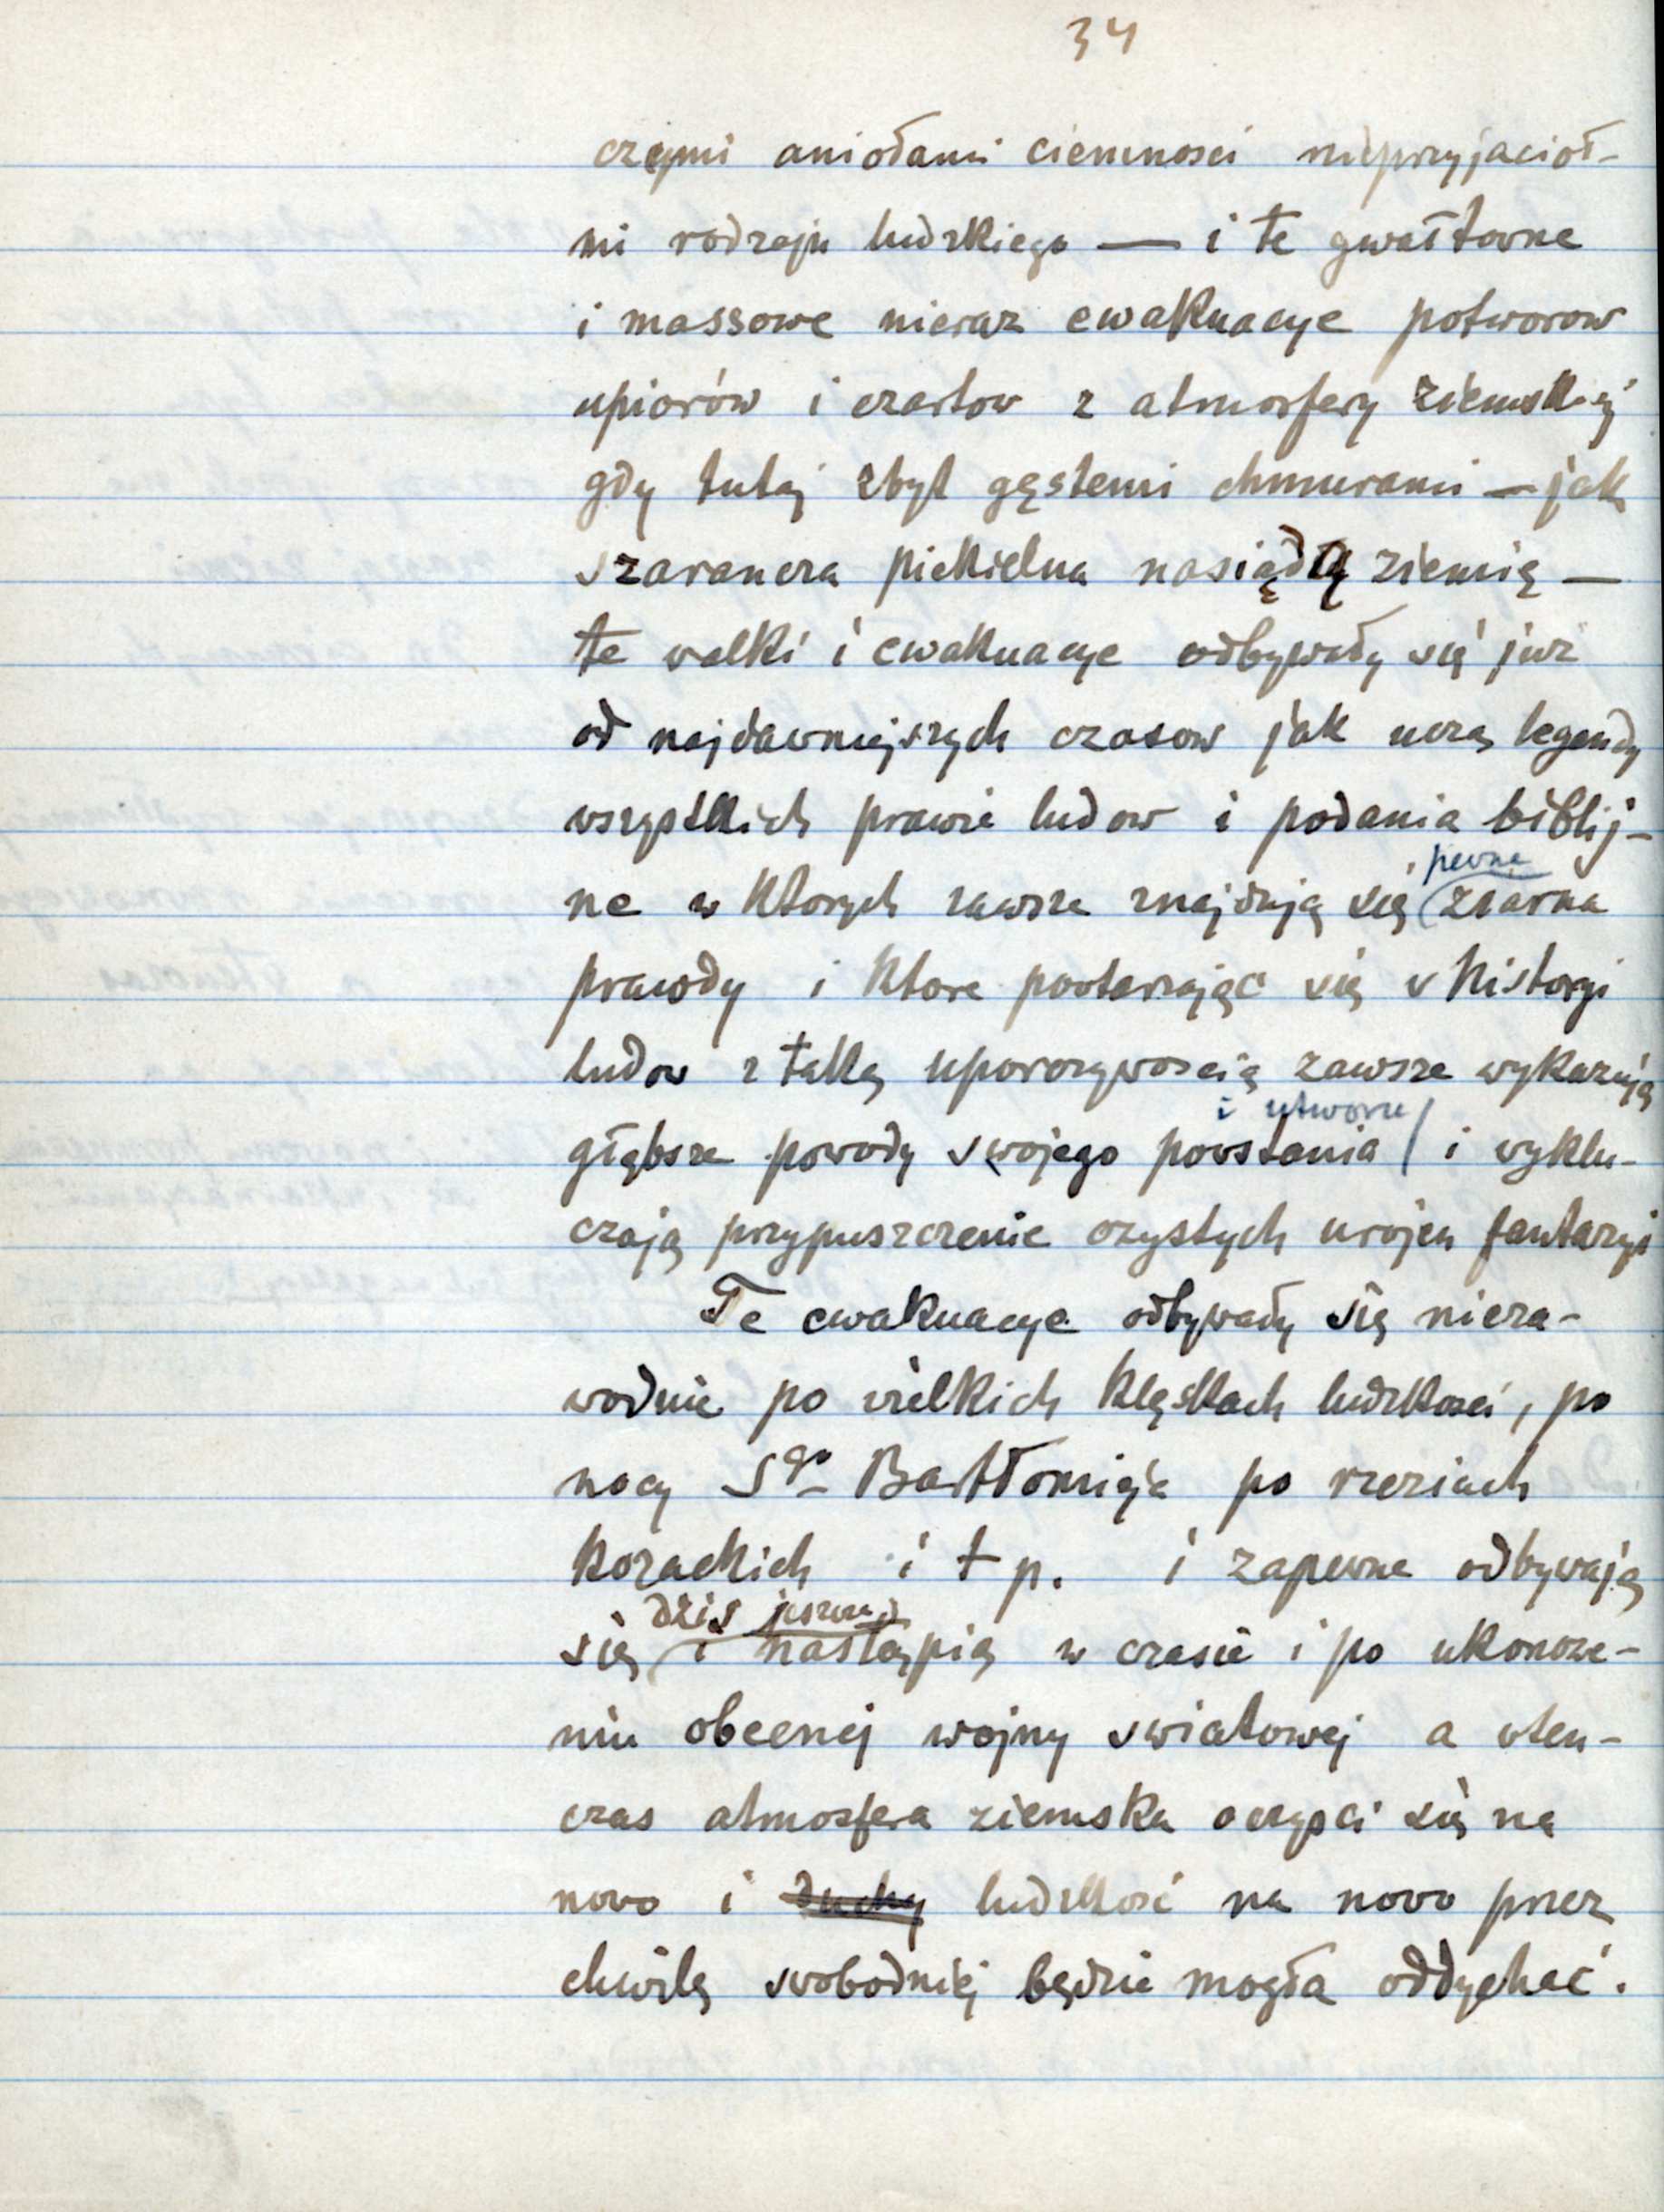 34
czymi aniołami ciemnosci nieprzyjacioł-
mi rodzaju ludzkiego — i te gwałtowne
i massowe nieraz ewakuacye potworow
upiorów i czartow z atmosfery ziemskiej
gdy tutaj zbyt gęstemi chmurami — jak
szarancza piekielna nasiądą ziemię —
te walki i ewakuacye odbywały się już
od najdawniejszych czasow jak uczą legendy
wszystkich prawie ludow i podania biblij-
pewne
ne w ktorych zawsze znajdują się ziarna
prawdy i ktore powtarzając się w historyi
ludow z taką uporczywoscią zawsze wykazują
i utworu
głębsze powody swojego powstania i wyklu-
czają przypuszczenie czystych urojen fantazyi
Te ewakuacye odbywały się nieza-
wodnie po wielkich klęskach ludzkosci, po
nocy Sgo Bartłomieja po rzeziach
kozackich i t p. i zapewne odbywają
dziś jeszcze
się i nastąpią w czasie i po ukoncze-
niu obecnej wojny swiatowej a wten-
czas atmosfera ziemska oczysci się na
nowo i duchy ludzkość na nowo przez
chwilę swobodniej będzie mogła oddychać.